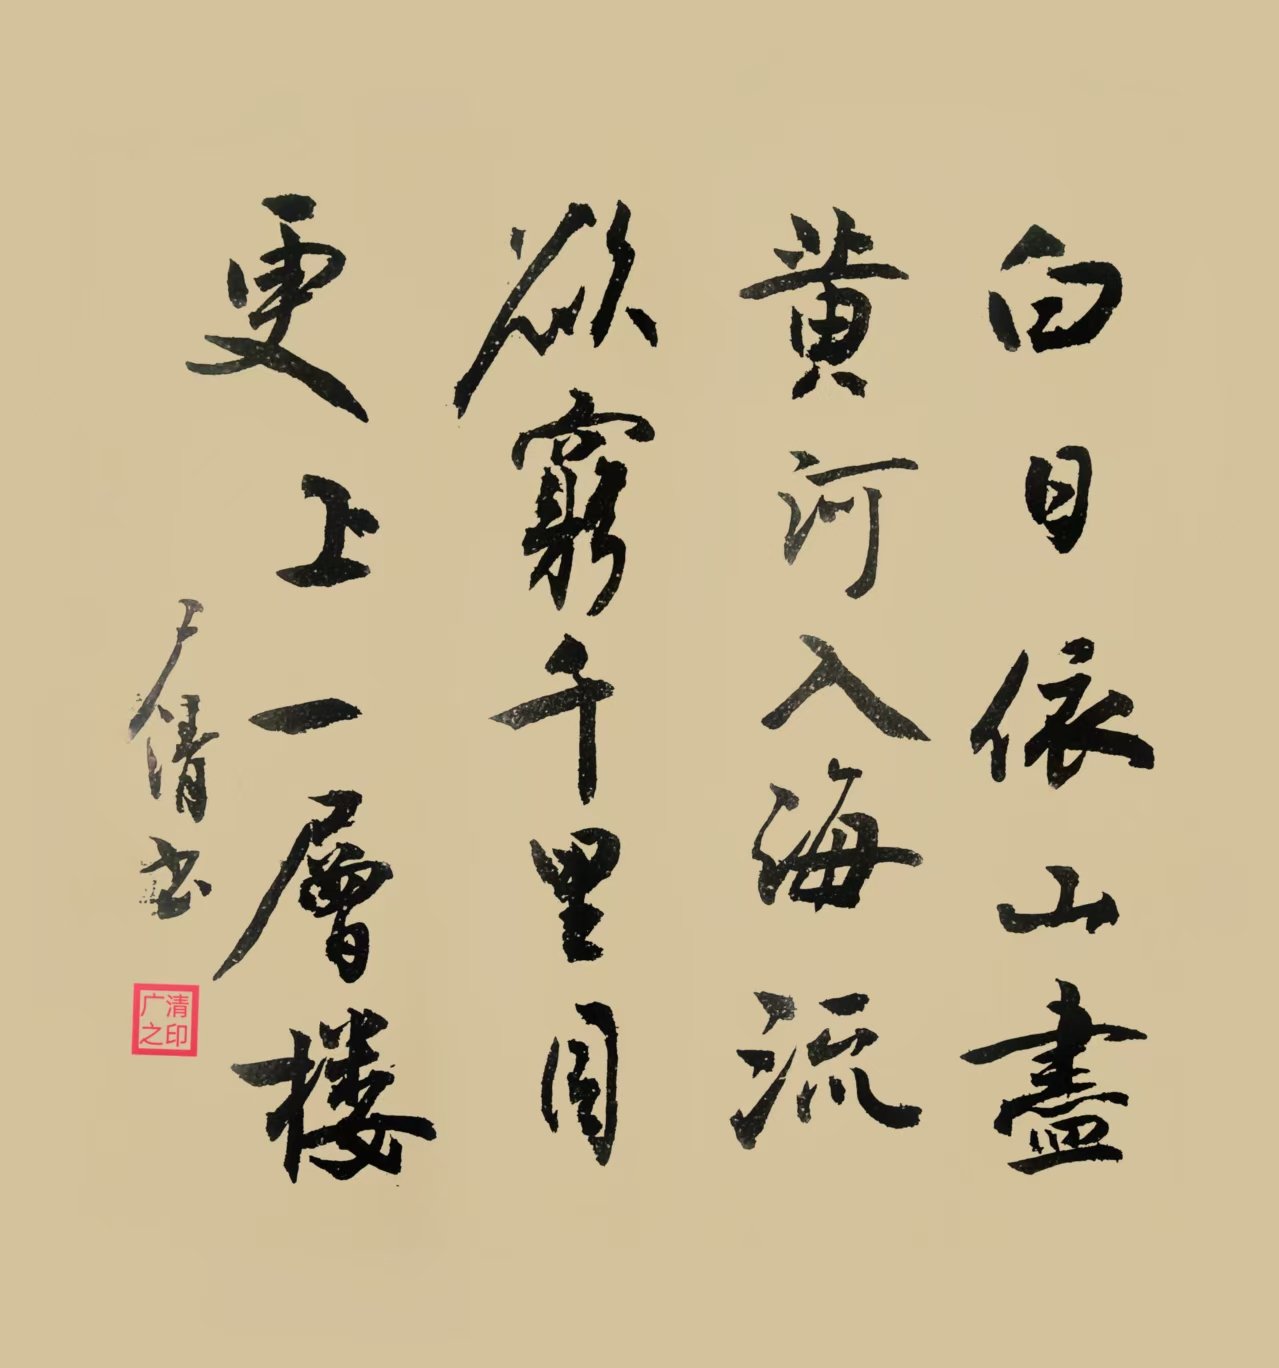 白日依山盡
黄河入海流
欲窮千里目
更上一層楼
广清书
清印
广之